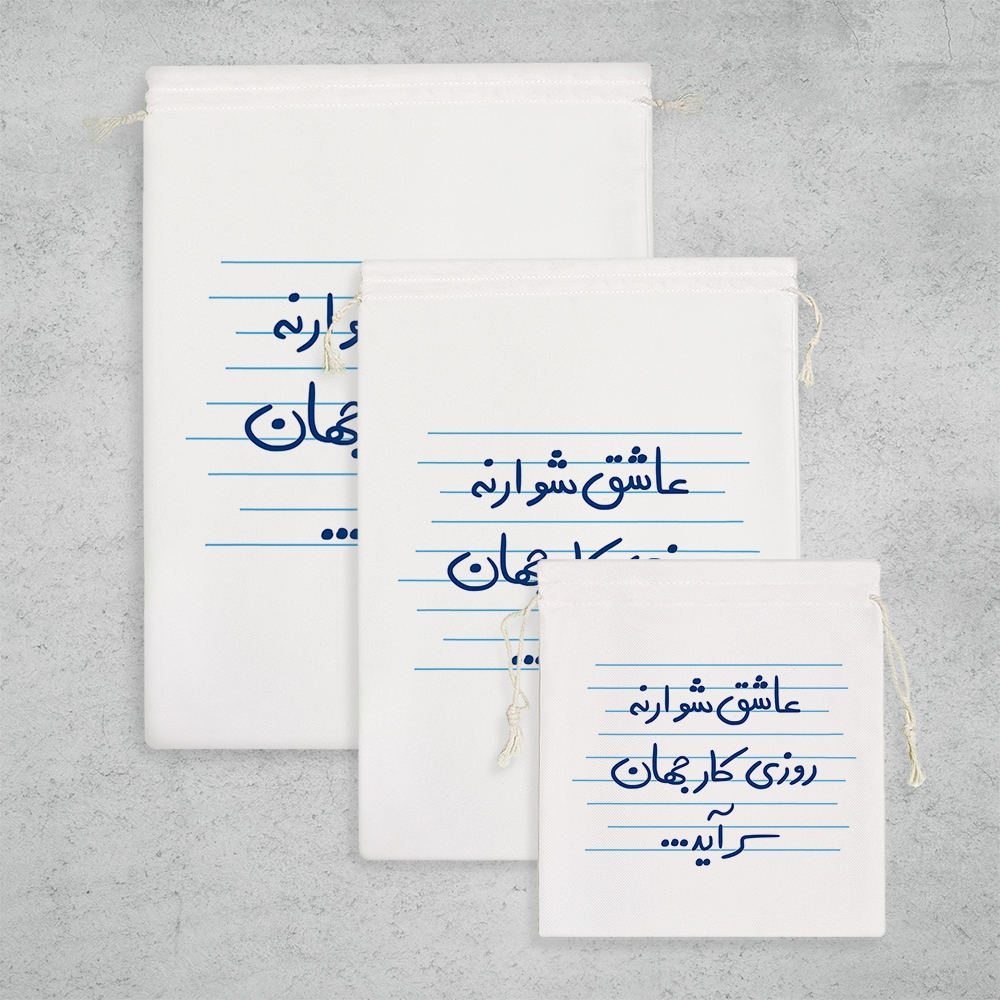 ارنه
جهان
...
عاشق شو ارنه
جهان
...
عاشق شو ارنه
روزی کار جهان
سر آید...